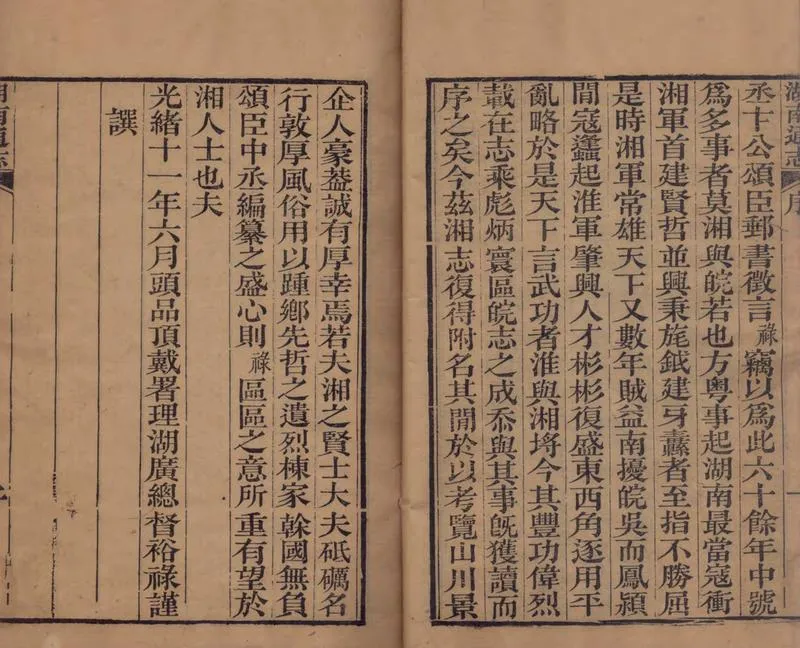 湖南通志 序
丞卞公頌臣郵書徵言祿竊以爲此六十餘年中號
爲多事者莫湘與皖若也方粵事起湖南最當寇衝
湘軍首建賢哲並興秉旄鉞建牙纛者至指不勝屈
是時湘軍常雄天下又數年賊益南擾皖吳而鳳潁
閒寇蠭起淮軍肇興人才彬彬復盛東西角逐用平
亂略於是天下言武功者淮與湘埒今其豐功偉烈
載在志乘彪炳寰區皖志之成忝與其事旣獲讀而
序之矣今茲湘志復得附名其閒於以考覽山川景
企人豪葢誠有厚幸焉若夫湘之賢士大夫砥礪名
行敦厚風俗用以踵鄉先哲之遺烈棟家榦國無負
頌臣中丞編纂之盛心則祿區區之意所重有望於
湘人士也夫
光緒十一年六月頭品頂戴署理湖廣總督裕祿謹
譔